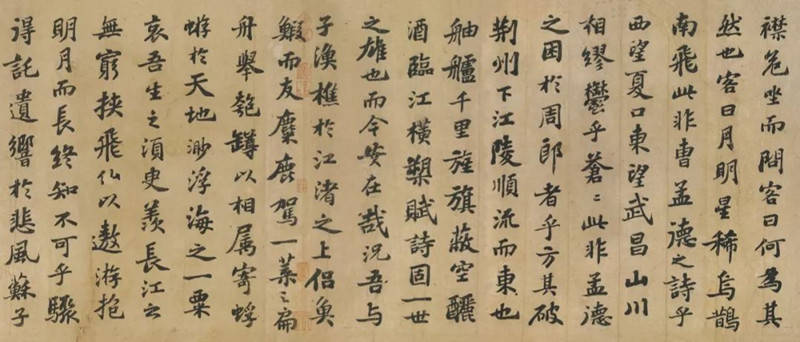 襟危坐而問客曰何為其
然也客曰月明星稀烏鵲
南飛此非曹孟德之詩乎
西望夏口東望武昌山川
相繆鬱乎蒼〻此非孟德
之困於周郎者乎方其破
荆州下江陵順流而東也
舳艫千里旌旗蔽空釃
酒臨江橫槊賦詩固一世
之雄也而今安在哉況吾與
子漁樵於江渚之上侶魚
鰕而友麋鹿駕一葉之扁
舟舉匏罇以相属寄蜉
蝣於天地渺浮海之一粟
哀吾生之須臾羨長江之
無窮挾飛仙以遨游抱
明月而長終知不可乎驟
得託遺響於悲風蘇子